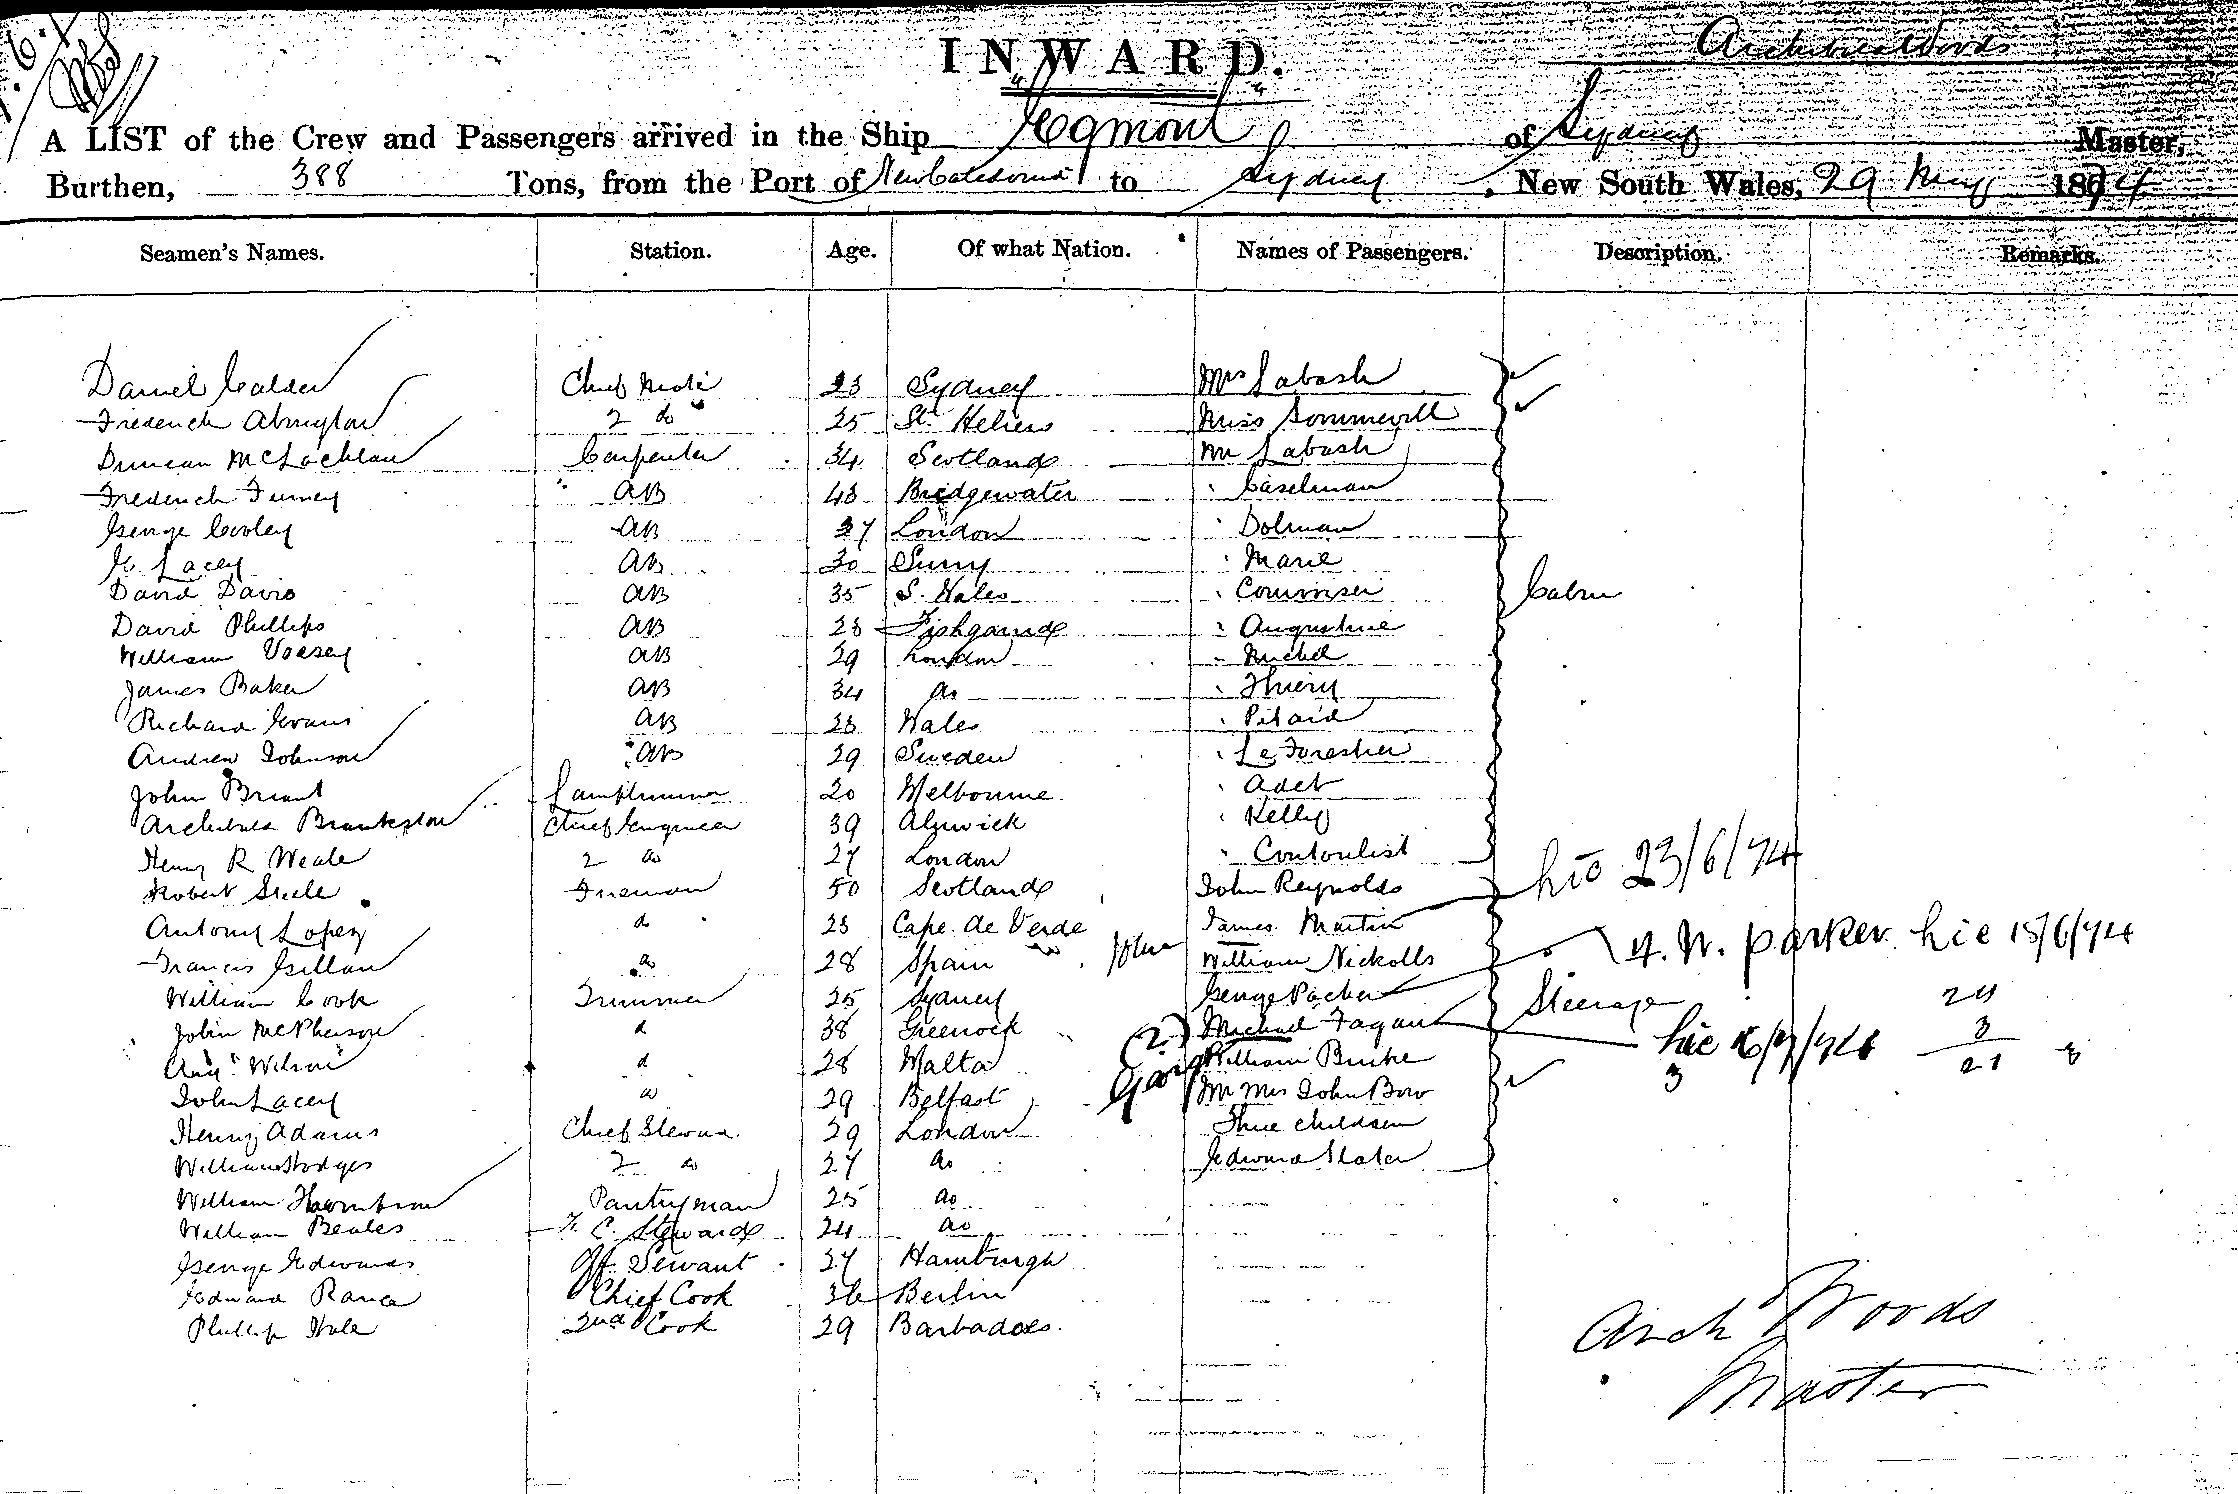 INWARD.
Archibald Woods
A LIST of the Crew and Passengers arrived in the Ship "Egmont" of Sydney Master,
Burthen, 388 Tons, from the Port of New Caledonia to Sydney, New South Wales, 29 May 1874
Seamen's Names. Station. Age. Of what Nation. Names of Passengers. Description. Remarks.
Daniel Calder Chief Mate 23 Sydney Mrs Labash
Frederick Abington 2 do 25 St. Heliers Miss Sommervill
Duncan McLachlan Carpenter 34 Scotland Mr Labash
Frederick Furney AB 43 Bridgewater " Caselman
George Cooley AB 27 London " Dolman
E. Lacey AB 30 Surry " Marie
David Davis AB 35 S. Wales " Cabin
David Phillips AB 28 Fishgaurd " Augustine
William Voesey AB 29 London " Michel
James Baker AB 34 do " Thiery
Richard Evans AB 28 Wales " Pitaid
Andrew Johnson AB 29 Sweden " Le Forestier
John Briant Lamptrimmer 20 Melbourne " Adet
Archibald Brankston Chief Engineer 39 Alnwick " Kelly
Henry R Weale 2 do 27 London " Contoulist
Robert Steele Fireman 50 Scotland John Reynolds hic 23/6/74
Antony Lopez do 23 Cape de Verde James Martin
Francis Gillan do 28 Spain John William Nickolls H. W. Parker hic 15/6/74
William Cook Trimmer 25 Sydney George Packer Steerage 24
John McPherson do 38 Greenock (?) Michael Fagan hic 16/7/74 3
Augt Wilson do 28 Malta George William Burke 3 21 8
John Lacey do 29 Belfast Mr Mrs John Bow
Henry Adams Chief Steward 29 London Three children
William Hodges 2 do 27 do Edward Slater
William Thornton Pantryman 25 do
William Beales F. C. Steward 24 do
George Edwards Off. Servant 27 Hamburgh
Edward Rance Chief Cook 36 Berlin
Phillip Hale 2nd Cook 29 Barbadoes
Arch Woods
Master